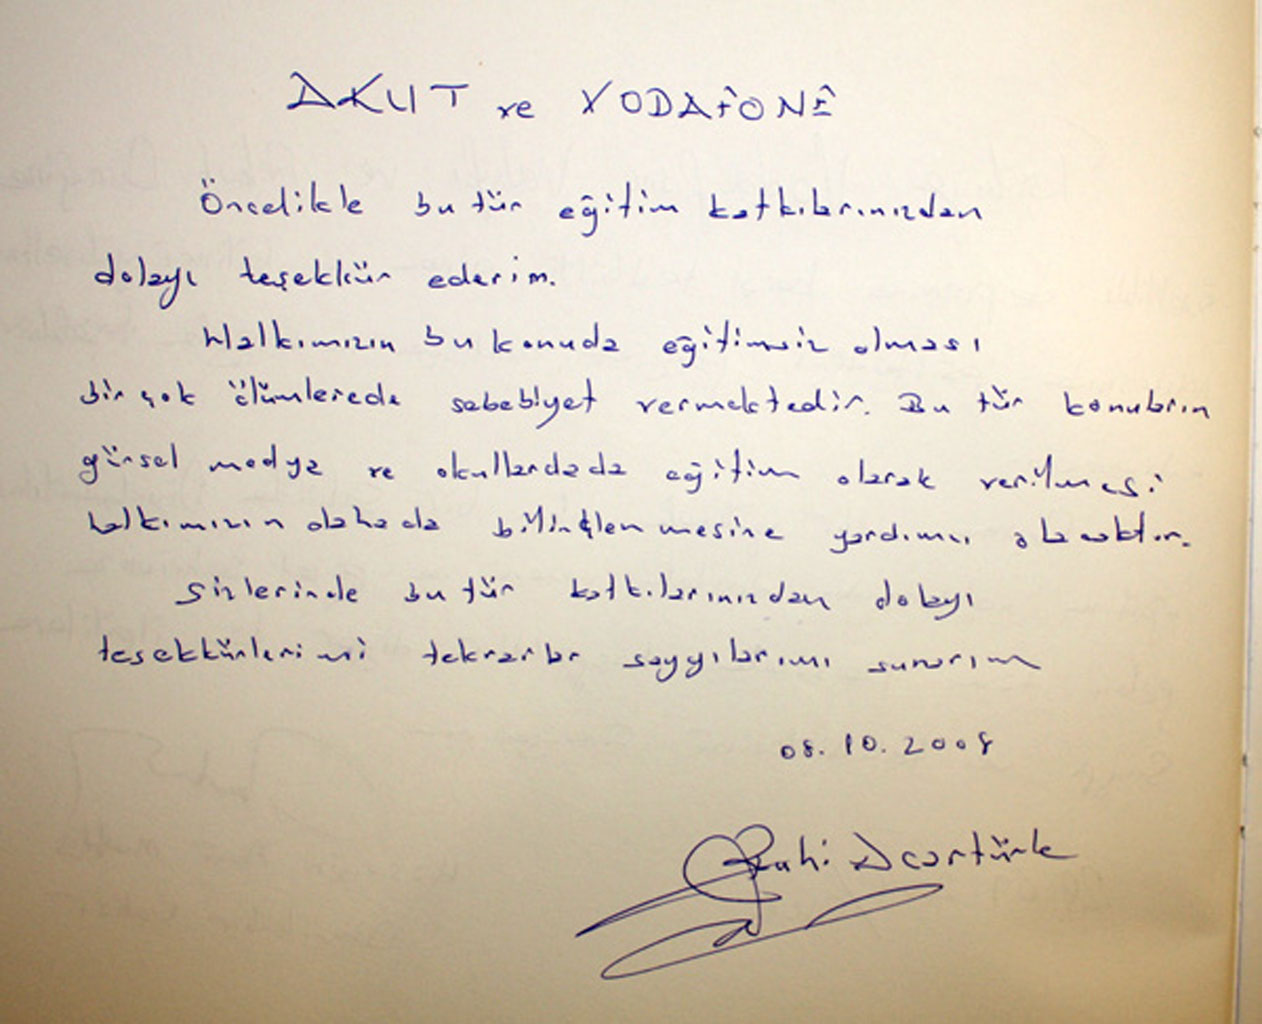 AKUT ve VODAFONE
Öncelikle bu tür eğitim katkılarınızdan
dolayı teşekkür ederim.
Halkımızın bu konuda eğitimsiz olması
bir çok ölümlerede sebebiyet vermektedir. Bu tür konuların
görsel medya ve okullardada eğitim olarak verilmesi
halkımızın dahada bilinçlenmesine yardımcı olacaktır.
Sizlerinde bu tür katkılarınızdan dolayı
teşekkürlerimi tekrarlar saygılarımı sunarım
08.10.2008
Acartürk